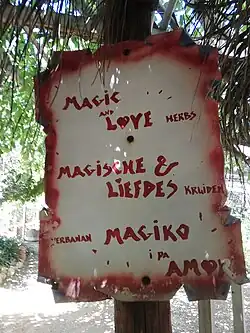 MAGIC
AND
LOVE HERBS
MAGISCHE &
LIEFDES KRUIDEN
YERBANAN MAGIKO
I PA
AMOR